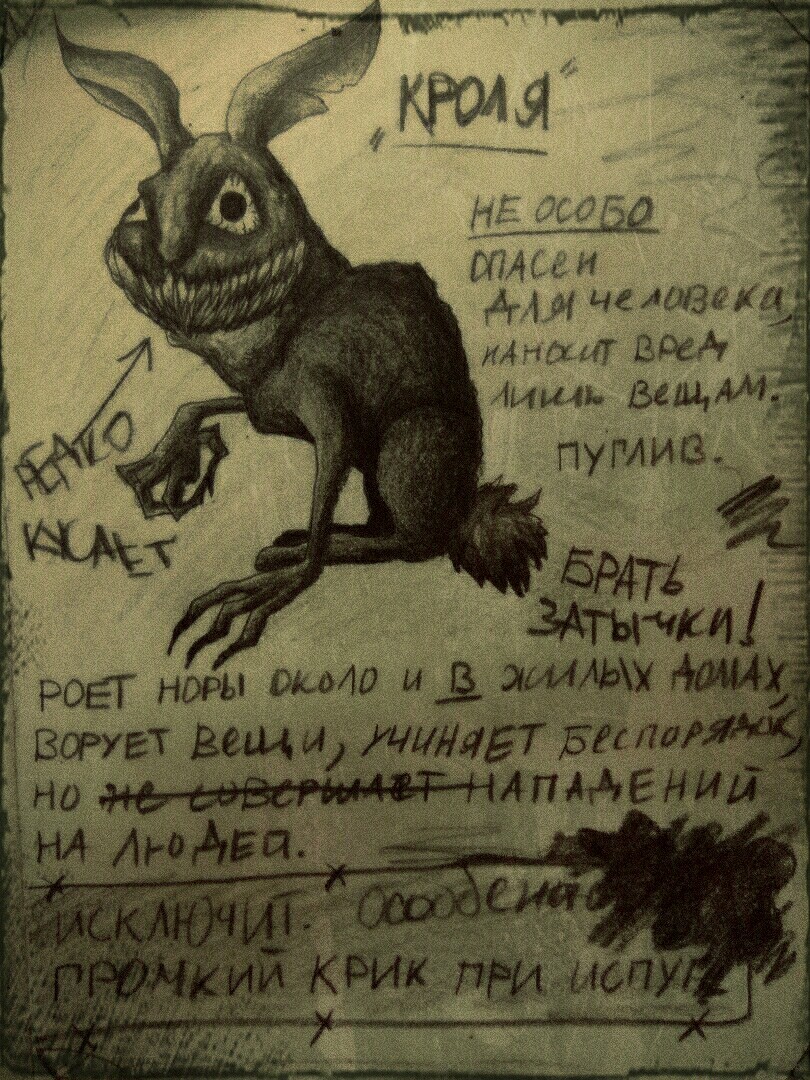 „КРОЛЯ"
НЕ ОСОБО
ОПАСЕН
ДЛЯ ЧЕЛОВЕКА,
НАНОСИТ ВРЕД
ЛИШЬ ВЕЩАМ.
ПУГЛИВ.
РЕДКО
КУСАЕТ
БРАТЬ
ЗАТЫЧКИ!
РОЕТ НОРЫ ОКОЛО И В ЖИЛЫХ ДОМАХ,
ВОРУЕТ ВЕЩИ, УЧИНЯЕТ БЕСПОРЯДОК,
НО НЕ СОВЕРШАЕТ НАПАДЕНИЙ
НА ЛЮДЕЙ.
ИСКЛЮЧИТ.
ГРОМКИЙ КРИК ПРИ